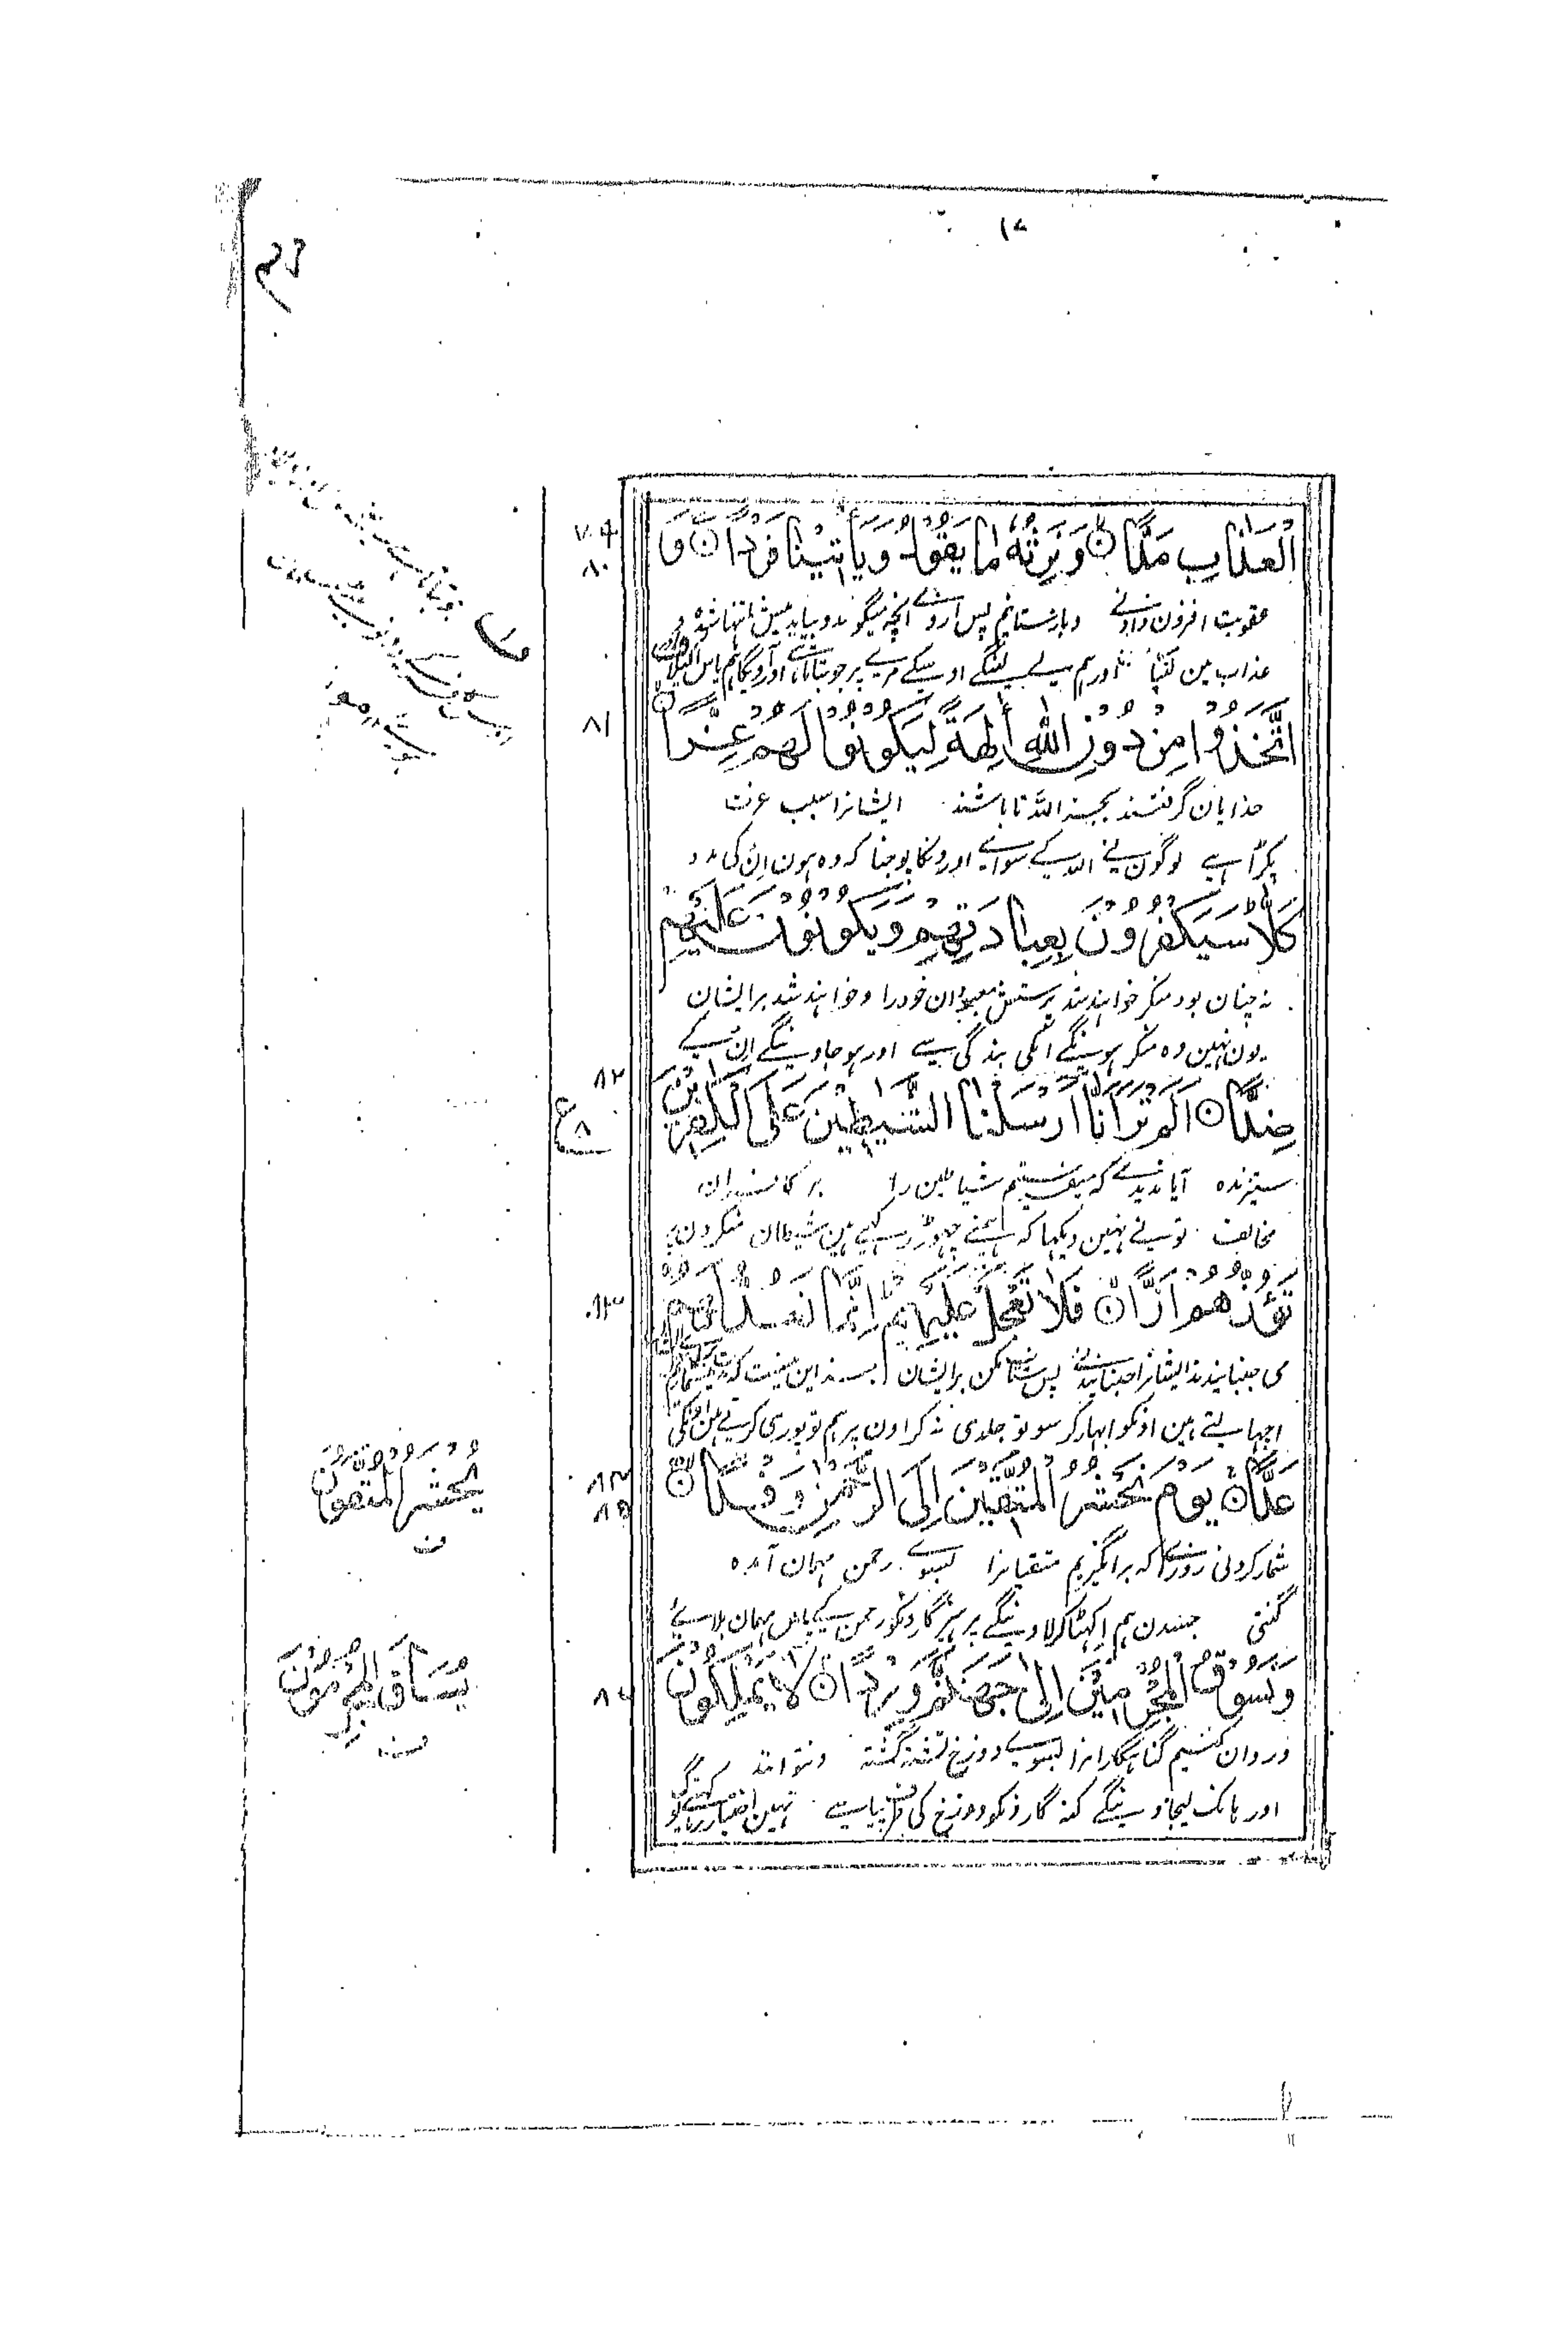 الْعَذَابِ مَدًّا ○ وَنَرِثُهُ مَا يَقُولُ وَيَأْتِينَا فَرْدًا ○ وَ
۷۹
۸۰
عقوبت افزون دادنے وباز ستانیم پس از وے آنچہ میگوید و بیاید پیش ما تنها شدہ و
عذاب مین لنبا اور ہم لے لینگے اوسکے مرے پر جو بتاتا ہے اور آویگا ہم پاس اکیلا
اتَّخَذُوا مِنْ دُونِ اللَّهِ آلِهَةً لِيَكُونُوا لَهُمْ عِزًّا ○
۸۱
خدایان گرفتند بجز اللّٰہ تا باشند ایشانرا سبب عزت
پکڑا ہے لوگون نے اللہ کے سواے اورونکا پوجنا کہ وہ ہون ان کی مدد
كَلَّا سَيَكْفُرُونَ بِعِبَادَتِهِمْ وَيَكُونُونَ عَلَيْهِمْ
نہ چنان بود منکر خواہند شد پرستش معبودان خود را و خواہند شد بر ایشان
یون نہین وہ منکر ہوینگے انکی بندگی سے اور ہو جاوینگے ان کے
۸۲
ضِدًّا ○ أَلَمْ تَرَ أَنَّا أَرْسَلْنَا الشَّيٰطِينَ عَلَى الْكٰفِرِينَ
ع ۸
ستیزندہ آیا ندیدے کہ میفرستیم شیاطین را بر کافران
مخالف تو نے نہین دیکہا کہ ہمنے چہوڑ رکہے ہین شیطان منکرون پر
تَؤُزُّهُمْ أَزًّا ○ فَلَا تَعْجَلْ عَلَيْهِمْ إِنَّمَا نَعُدُّ لَهُمْ
۸۳
می جنبانیدند ایشانرا جنبانیدنے پس شتاب مکن بر ایشان جز این نیست کہ میشماریم
اچہالتے ہین اونکو ابہار کر سو تو جلدی نہ کر اون پر ہم تو پوری کرتے ہین اونکی
عَدًّا ○ يَوْمَ نَحْشُرُ الْمُتَّقِينَ إِلَى الرَّحْمٰنِ وَفْدًا ○
۸۴
۸۵
شمار کردنی روزے کہ بر انگیزیم متقیانرا بسوے رحمن مہمان آمدہ
گنتی جسدن ہم اکہٹا کر لاوینگے پرہیزگارونکو رحمن کے پاس مہمان بلاے
وَنَسُوقُ الْمُجْرِمِينَ إِلَىٰ جَهَنَّمَ وِرْدًا ○ لَا يَمْلِكُونَ
۸۶
و روان کنیم گناہگارانرا بسوے دوزخ تشنہ گشتہ و نتوانند
اور ہانک لیجاوینگے گنہ گارونکو دوزخ کی طرف پیاسے نہین اختیار رکہتے
يُحْشَرُ الْمُتَّقُونَ
ن
يُسَاقُ الْمُجْرِمُونَ